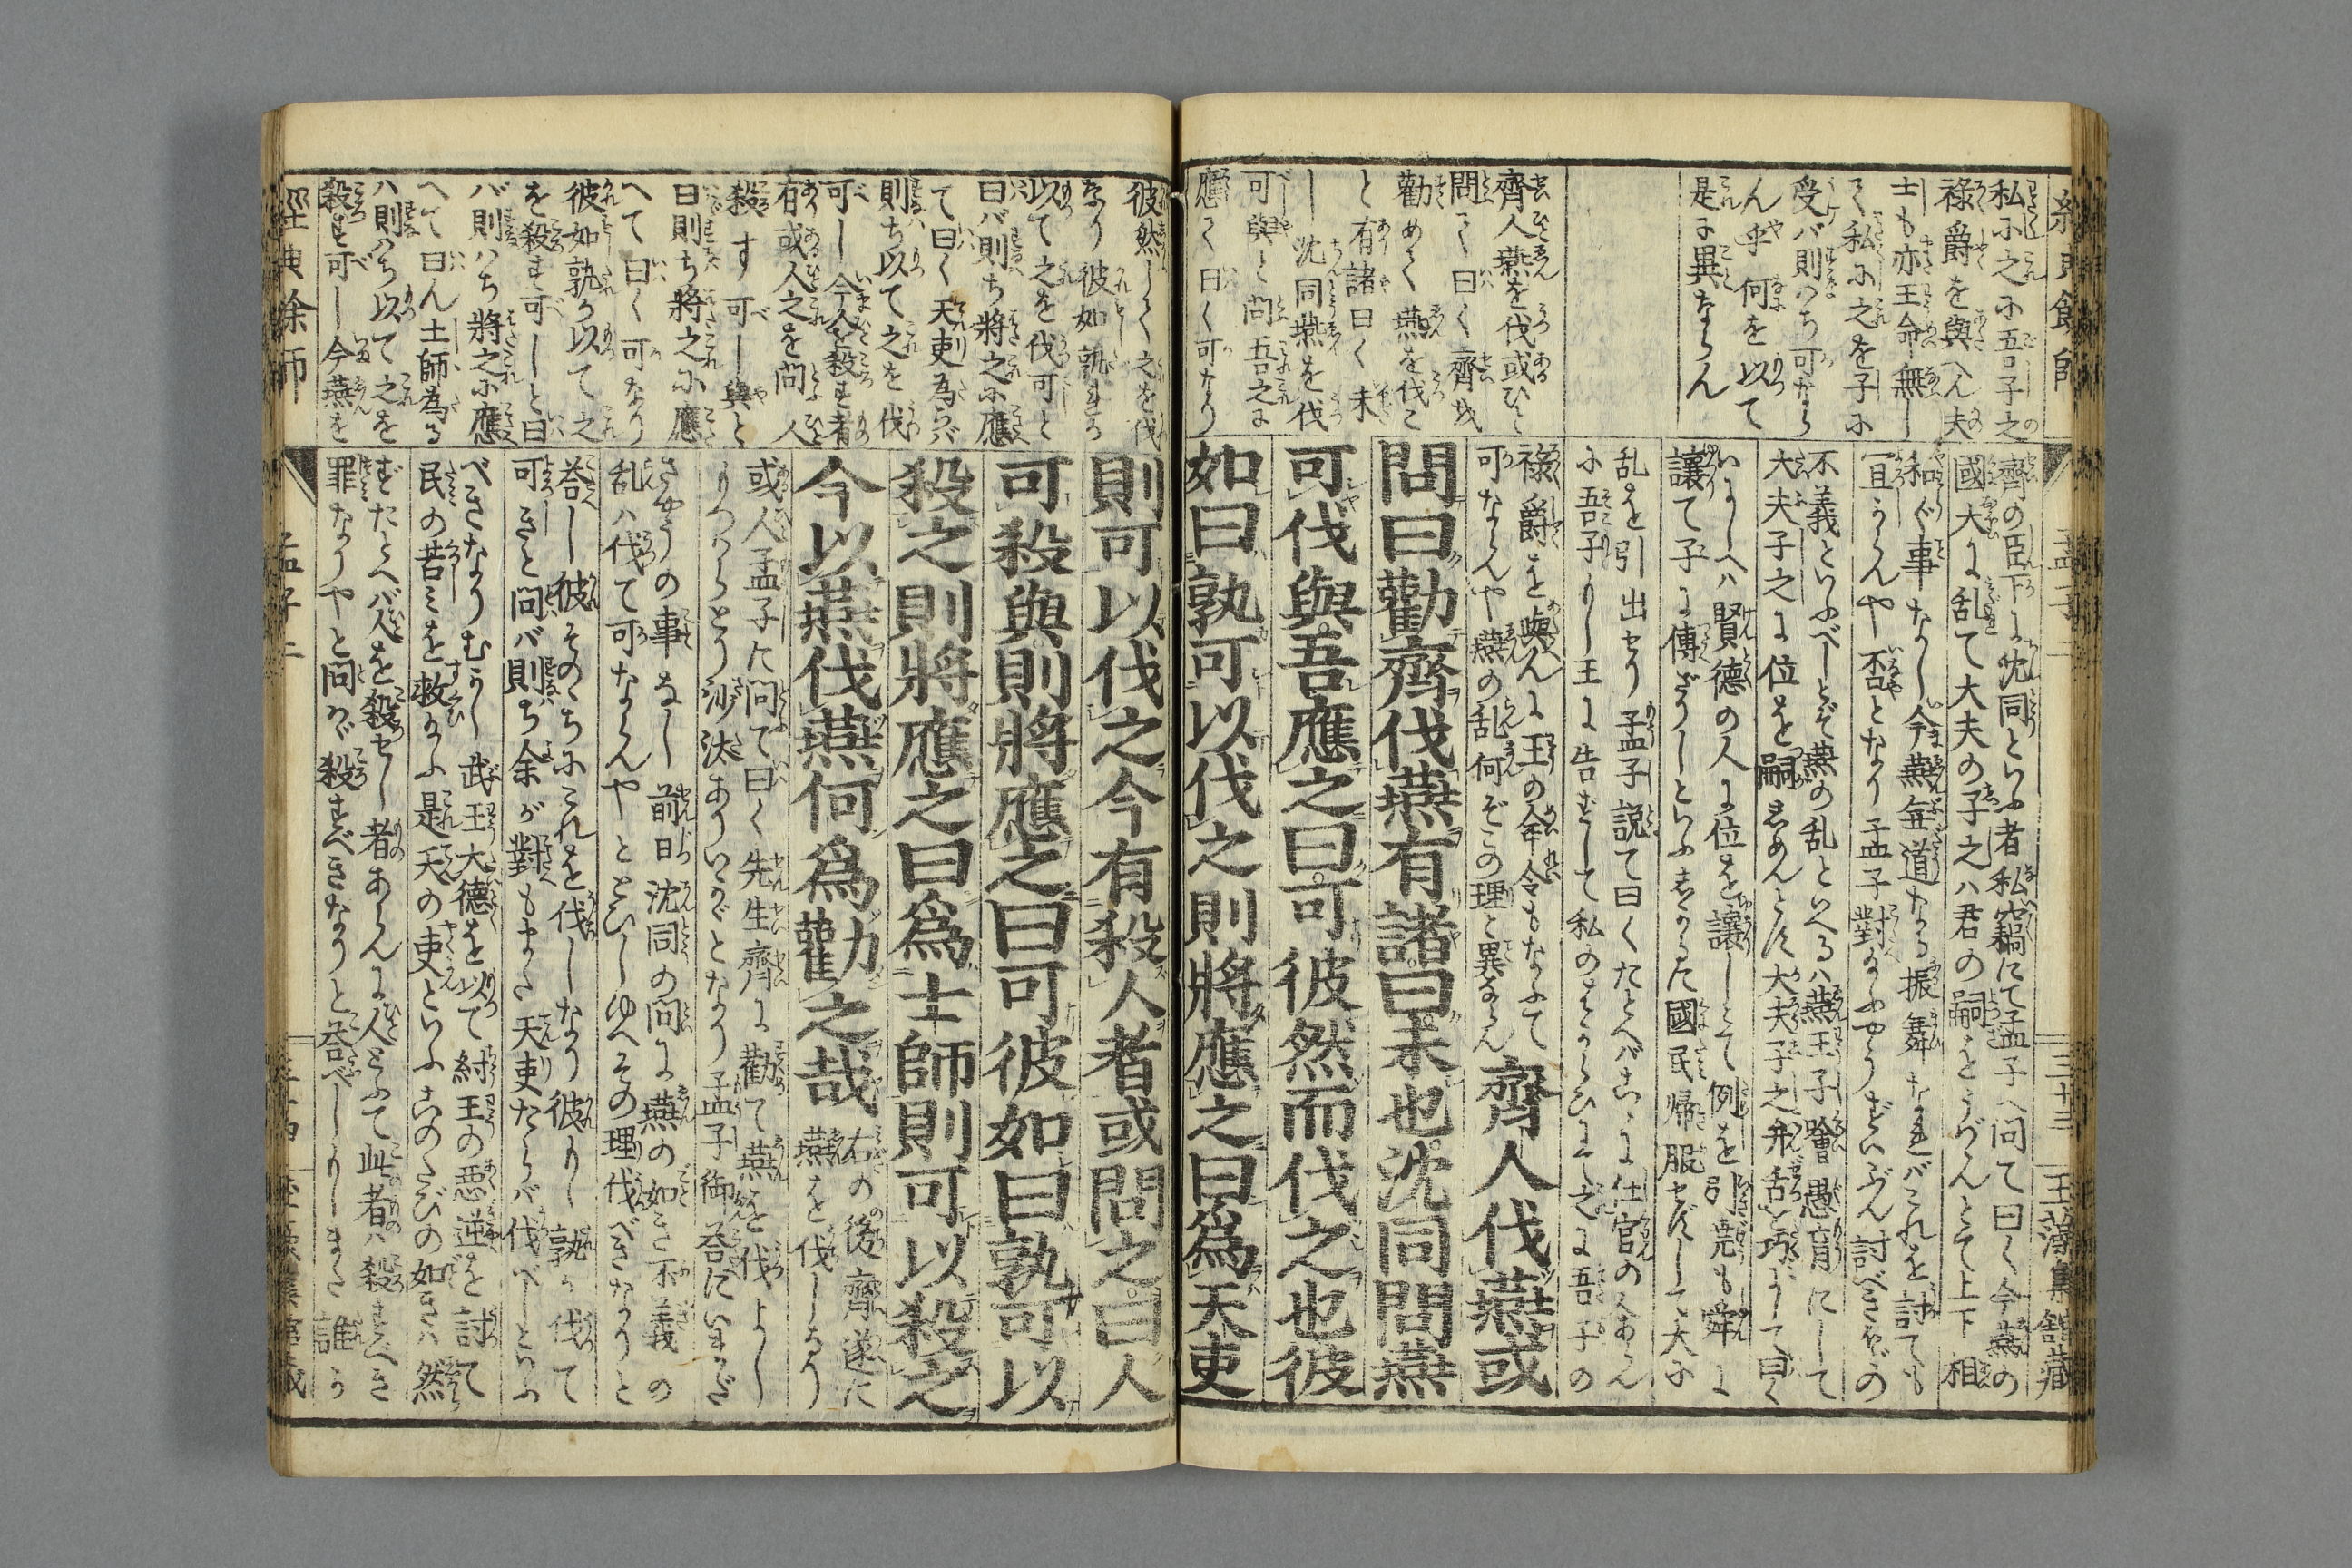 經典餘師
私に之に吾子之
祿爵を與へん夫
士も亦王命無し
て私に之を子に
受バ則ハち可なら
ん乎何を以て
是に異ならん
齊人燕を伐或ひと
問て曰く齊に
勸めて燕を伐こ
と有諸曰く未
し沈同燕を伐
可與と問吾之に
應て曰く可なり
孟子二
三十三
齊の臣下に沈同といふ者私竊にて孟子へ問て曰く今燕の
國大に乱て大夫の子之ハ君の嗣をうばんとて上下相
和ぐ事なし今燕無道なる振舞なれバこれを討ても
宜からんや否となり孟子對ふやうずいぶん討べきほどの
不義といふべしとぞ燕の乱といへるハ燕王子噲愚盲にして
大夫子之に位を嗣しめんとす大夫子之弁舌を巧にして曰く
いにしへハ賢德の人に位を讓しとて例を引尭も舜に
讓て子に傳ざりしといふしかるに國民歸服せずして大に
乱を引出せり孟子説て曰くたとへバこゝに仕官の人あらん
に吾子りし王に告ずして私のはからひにて之に吾子の
祿爵を與んに王の命令もなふて
可ならんや燕の乱何ぞこの理と異ならん
齊人伐燕或
問曰勸齊伐燕有諸曰未也沈同問燕
可伐與吾應之曰可彼然而伐之也彼
如曰孰可以伐之則將應之曰爲天吏
彼然して之を伐
なり彼如孰まち
以て之を伐可と
曰バ則ち將之に應
て曰く天吏為らバ
則ち以て之を伐
可し今人を殺す者
有或人之を問人
殺す可し與と
曰則ち將之に應
へて曰く可なり
彼如孰か以て之
を殺す可しと曰
バ則ハち將之に應
へて曰ん士師為る
ハ則ハち以て之を
殺す可し今燕を
則可以伐之今有殺人者或問之曰人
可殺與則將應之曰可彼如曰孰可以
殺之則將應之曰爲士師則可以殺之
今以燕伐燕何爲勸之哉
右の後齊遂に
燕を伐しなり
或人孟子に問て曰く先生齊に勸て燕を伐よかし
りつらとう沙汰ありいかゞとなり孟子御荅にいまだ
さやうの事なし前日沈同の問に燕の如き不義の
乱ハ伐て可ならんやととひしゆへその理伐べきなりと
荅し彼そのゝちにこれを伐しなり彼りし孰か伐て
可きと問バ則ち余が對もまた天吏たらバ伐べしといふ
べきなりむかし武王大德を以て紂王の惡逆を討て
民の苦ミを救ふ是天の吏といふこのたびの如きハ然
ずたとへバ人を殺せし者あらんに人とふて此者ハ殺すべき
罪なりやと問バ殺すべきなりと荅べしりしまた誰か
經典余師
孟子二